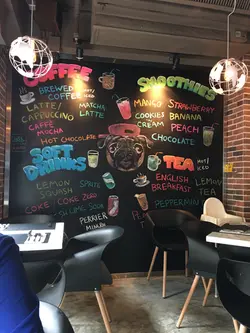 COFFEE
BREWED
COFFEE
HOT/
ICED
LATTE/
CAPPUCCINO
MATCHA
LATTE
CAFFE
MOCHA
HOT CHOCOLATE
SMOOTHIES
MANGO
STRAWBERRY
COOKIES
CREAM
BANANA
PEACH
CHOCOLATE
SOFT
DRINKS
LEMON
SQUASH
SPRITE
COKE
COKE ZERO
PERRIER
TEA
HOT/
ICED
ENGLISH
BREAKFAST
LEMON
TEA
PEPPERMINT